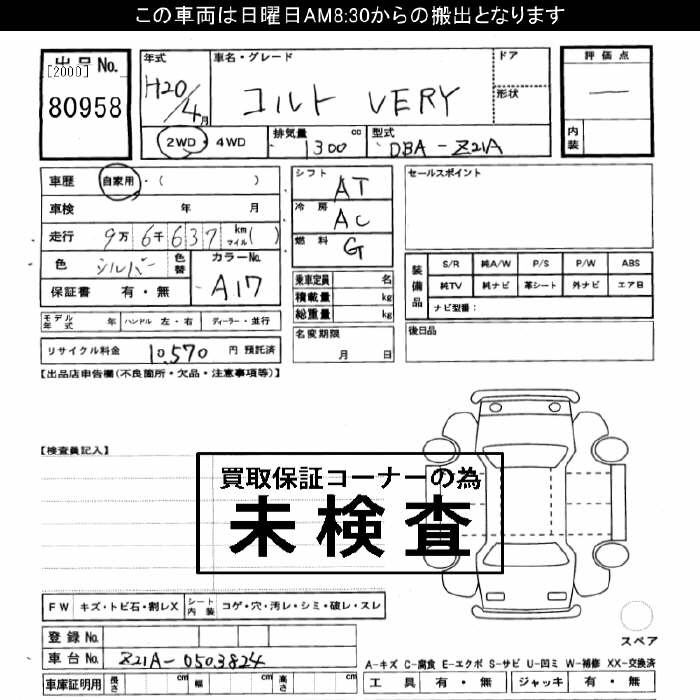 この車両は日曜日AM8:30からの搬出となります
出品No.
[2000]
80958
年式
H20/4月
車名・グレード
コルト VERY
ドア
形状
評価点
—
内装
2WD・4WD
排気量 cc
1300
型式
DBA-Z21A
車歴 自家用・( )
車検 年 月
走行 9万6千637 km マイル( )
色 シルバー 色替
カラーNo.
A17
保証書 有・無
シフト AT
冷房 AC
燃料 G
乗車定員 名
積載量 kg
総重量 kg
名変期限
月 日
セールスポイント
装備品
S/R 純A/W P/S P/W ABS
純TV 純ナビ 革シート 外ナビ エアB
ナビ型番:
後日品
モデル年式 年 ハンドル 左・右 ディーラー・並行
リサイクル料金 10,570 円 預託済
【出品店申告欄(不良箇所・欠品・注意事項等)】
【検査員記入】
買取保証コーナーの為
未検査
FW キズ・トビ石・割レX シート内装 コゲ・穴・汚レ・シミ・破レ・スレ
登録No.
車台No. Z21A-0503824
車庫証明用 長さ cm 幅 cm 高さ cm
スペア
A-キズ C-腐食 E-エクボ S-サビ U-凹ミ W-補修 XX-交換済
工具 有・無 ジャッキ 有・無